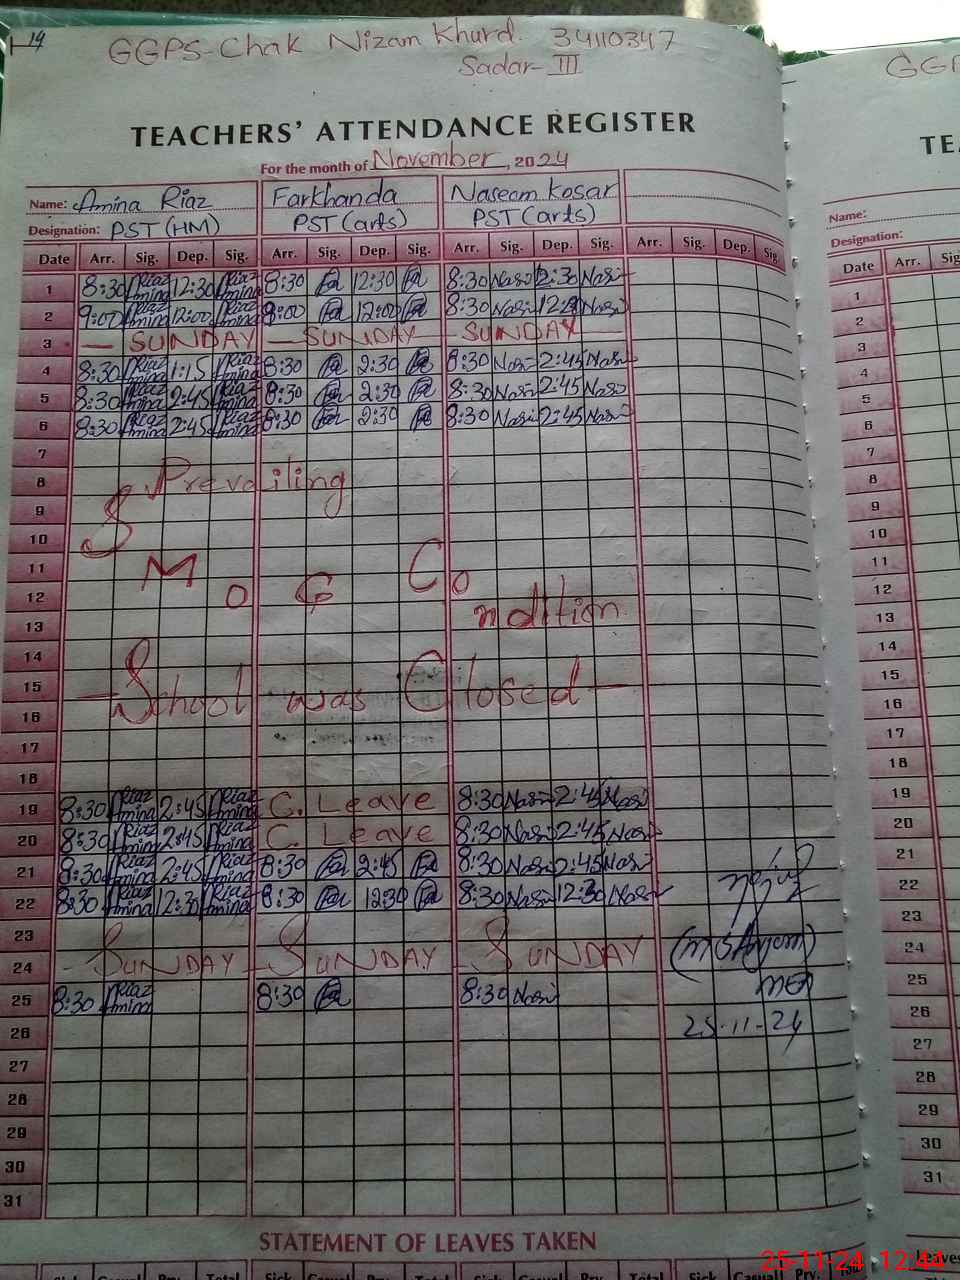 14
GGPS-Chak Nizam Khurd. 34110347
Sadar-III
TEACHERS' ATTENDANCE REGISTER
For the month of November, 2024
Name: Amina Riaz Farkhanda Naseem Kosar
Designation: PST (HM) PST (arts) PST (arts)
Date Arr. Sig. Dep. Sig. Arr. Sig. Dep. Sig. Arr. Sig. Dep. Sig. Arr. Sig. Dep. Sig.
1 8:30 Riaz Amina 12:30 Riaz Amina 8:30 12:30 8:30 Nasi 12:30 Nasi
2 9:00 Riaz Amina 12:00 Riaz Amina 8:00 12:00 8:30 Nasi Nasi
3 - SUNDAY - SUNDAY - SUNDAY -
4 8:30 Riaz Amina 1:15 Riaz Amina 8:30 2:30 8:30 Nasi 2:45 Nasi
5 8:30 Riaz Amina 2:45 Riaz Amina 8:30 2:30 8:30 Nasi 2:45 Nasi
6 8:30 Riaz Amina 2:45 Riaz Amina 8:30 2:30 8:30 Nasi 2:45 Nasi
7
8 Prevailing
9 S
10
11 M C
12 o G o
13 ndition
14
15 - School was Closed -
16
17
18
19 8:30 Riaz Amina 2:45 Riaz Amina C. Leave 8:30 Nasi 2:45 Nasi
20 8:30 Riaz Amina 2:45 Riaz Amina C. Leave 8:30 Nasi 2:45 Nasi
21 8:30 Riaz Amina 2:45 Riaz Amina 8:30 2:45 8:30 Nasi 2:45 Nasi
22 8:30 Riaz Amina 12:30 Riaz Amina 8:30 12:30 8:30 Nasi 12:30 Nasi
23
24 - SUNDAY - SUNDAY - SUNDAY
25 8:30 Riaz Amina 8:30 8:30 Nasi
26 25-11-24
27
28
29
30
31
STATEMENT OF LEAVES TAKEN
Sick Casual Prv. Total Sick Casual Prv. Total Sick Casual Prv. Total Sick Casual Prv. Total
GGP
Name:
Designation:
Date Arr.
1
2
3
4
5
6
7
8
9
10
11
12
13
14
15
16
17
18
19
20
21
22
23
24
25
26
27
28
29
30
31
25-11-24 12:44